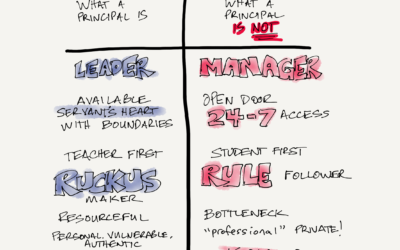 WHAT A
PRINCIPAL IS
LEADER
AVAILABLE
SERVANT'S HEART
WITH BOUNDARIES
TEACHER FIRST
RUCKUS
MAKER
RESOURCEFUL
PERSONAL, VULNERABLE,
AUTHENTIC
WHAT A
PRINCIPAL
IS NOT
MANAGER
OPEN DOOR
24-7 ACCESS
STUDENT FIRST
RULE FOLLOWER
BOTTLENECK
"professional" PRIVATE!